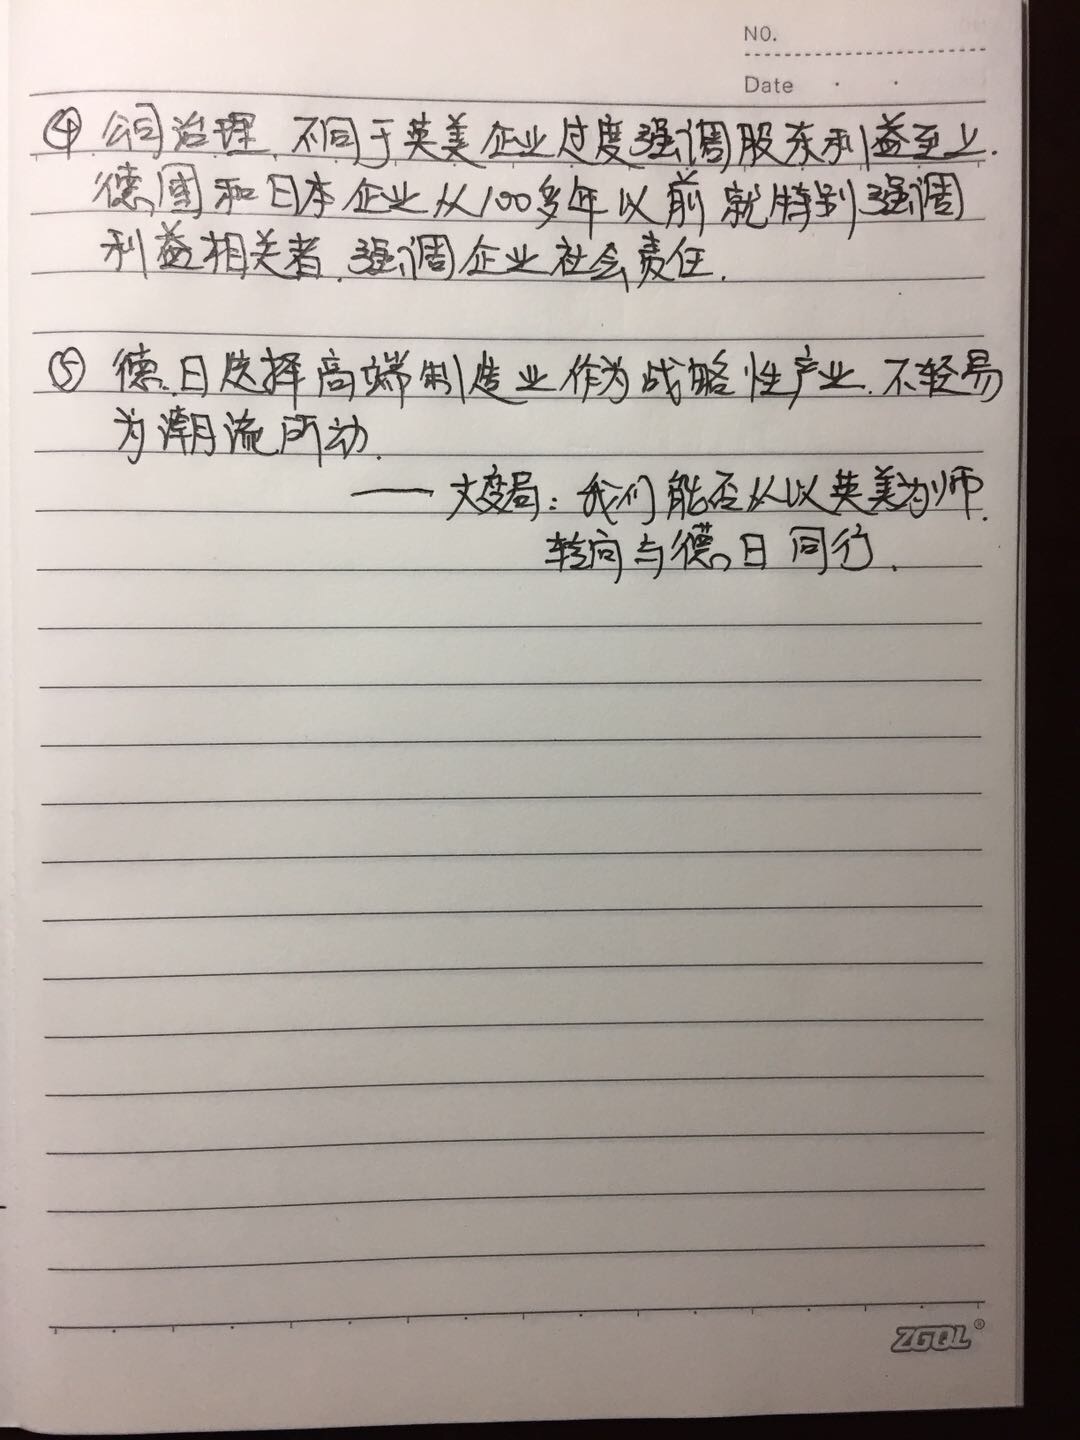 NO.
Date
④ 公司治理. 不同于英美企业过度强调股东利益至上.
德国和日本企业从100多年以前就特别强调
利益相关者. 强调企业社会责任.
⑤ 德.日选择高端制造业作为战略性产业. 不轻易
为潮流所动.
—— 大变局: 我们能否从以英美为师.
转向与德.日同行.
ZGQL®